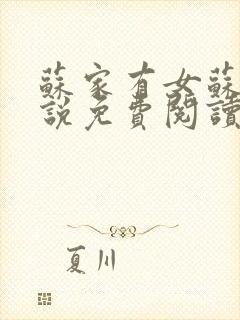 蘇家有女蘇
說免費閱讀
夏川